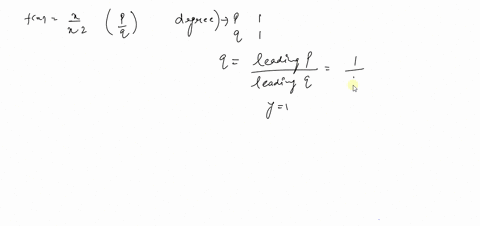 f(x) = x/x2 (P/q) degree) → P 1
q 1
q = leading P / leading q = 1/1
y = 1